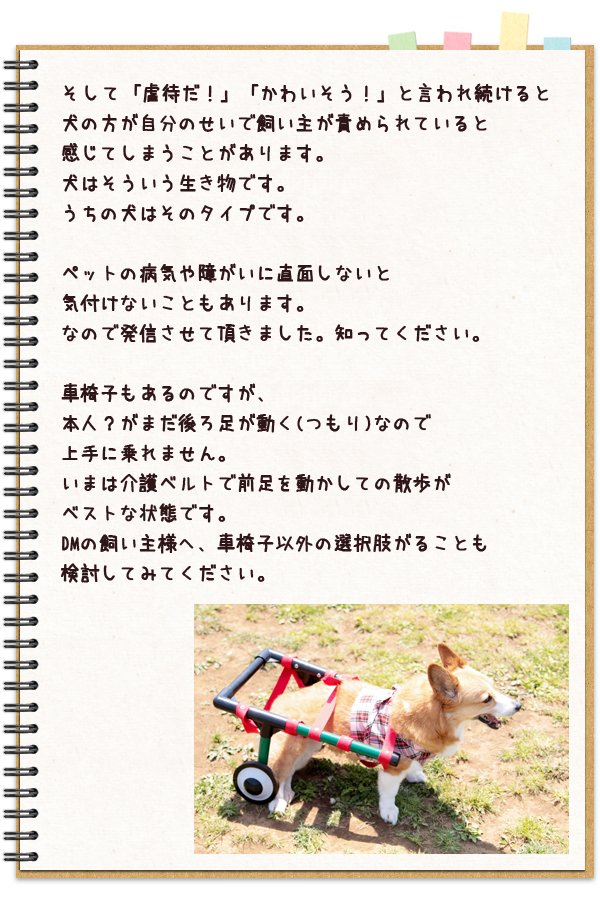 そして「虐待だ！」「かわいそう！」と言われ続けると
犬の方が自分のせいで飼い主が責められていると
感じてしまうことがあります。
犬はそういう生き物です。
うちの犬はそのタイプです。
ペットの病気や障がいに直面しないと
気付けないこともあります。
なので発信させて頂きました。知ってください。
車椅子もあるのですが、
本人？がまだ後ろ足が動く(つもり)なので
上手に乗れません。
いまは介護ベルトで前足を動かしての散歩が
ベストな状態です。
DMの飼い主様へ、車椅子以外の選択肢がることも
検討してみてください。